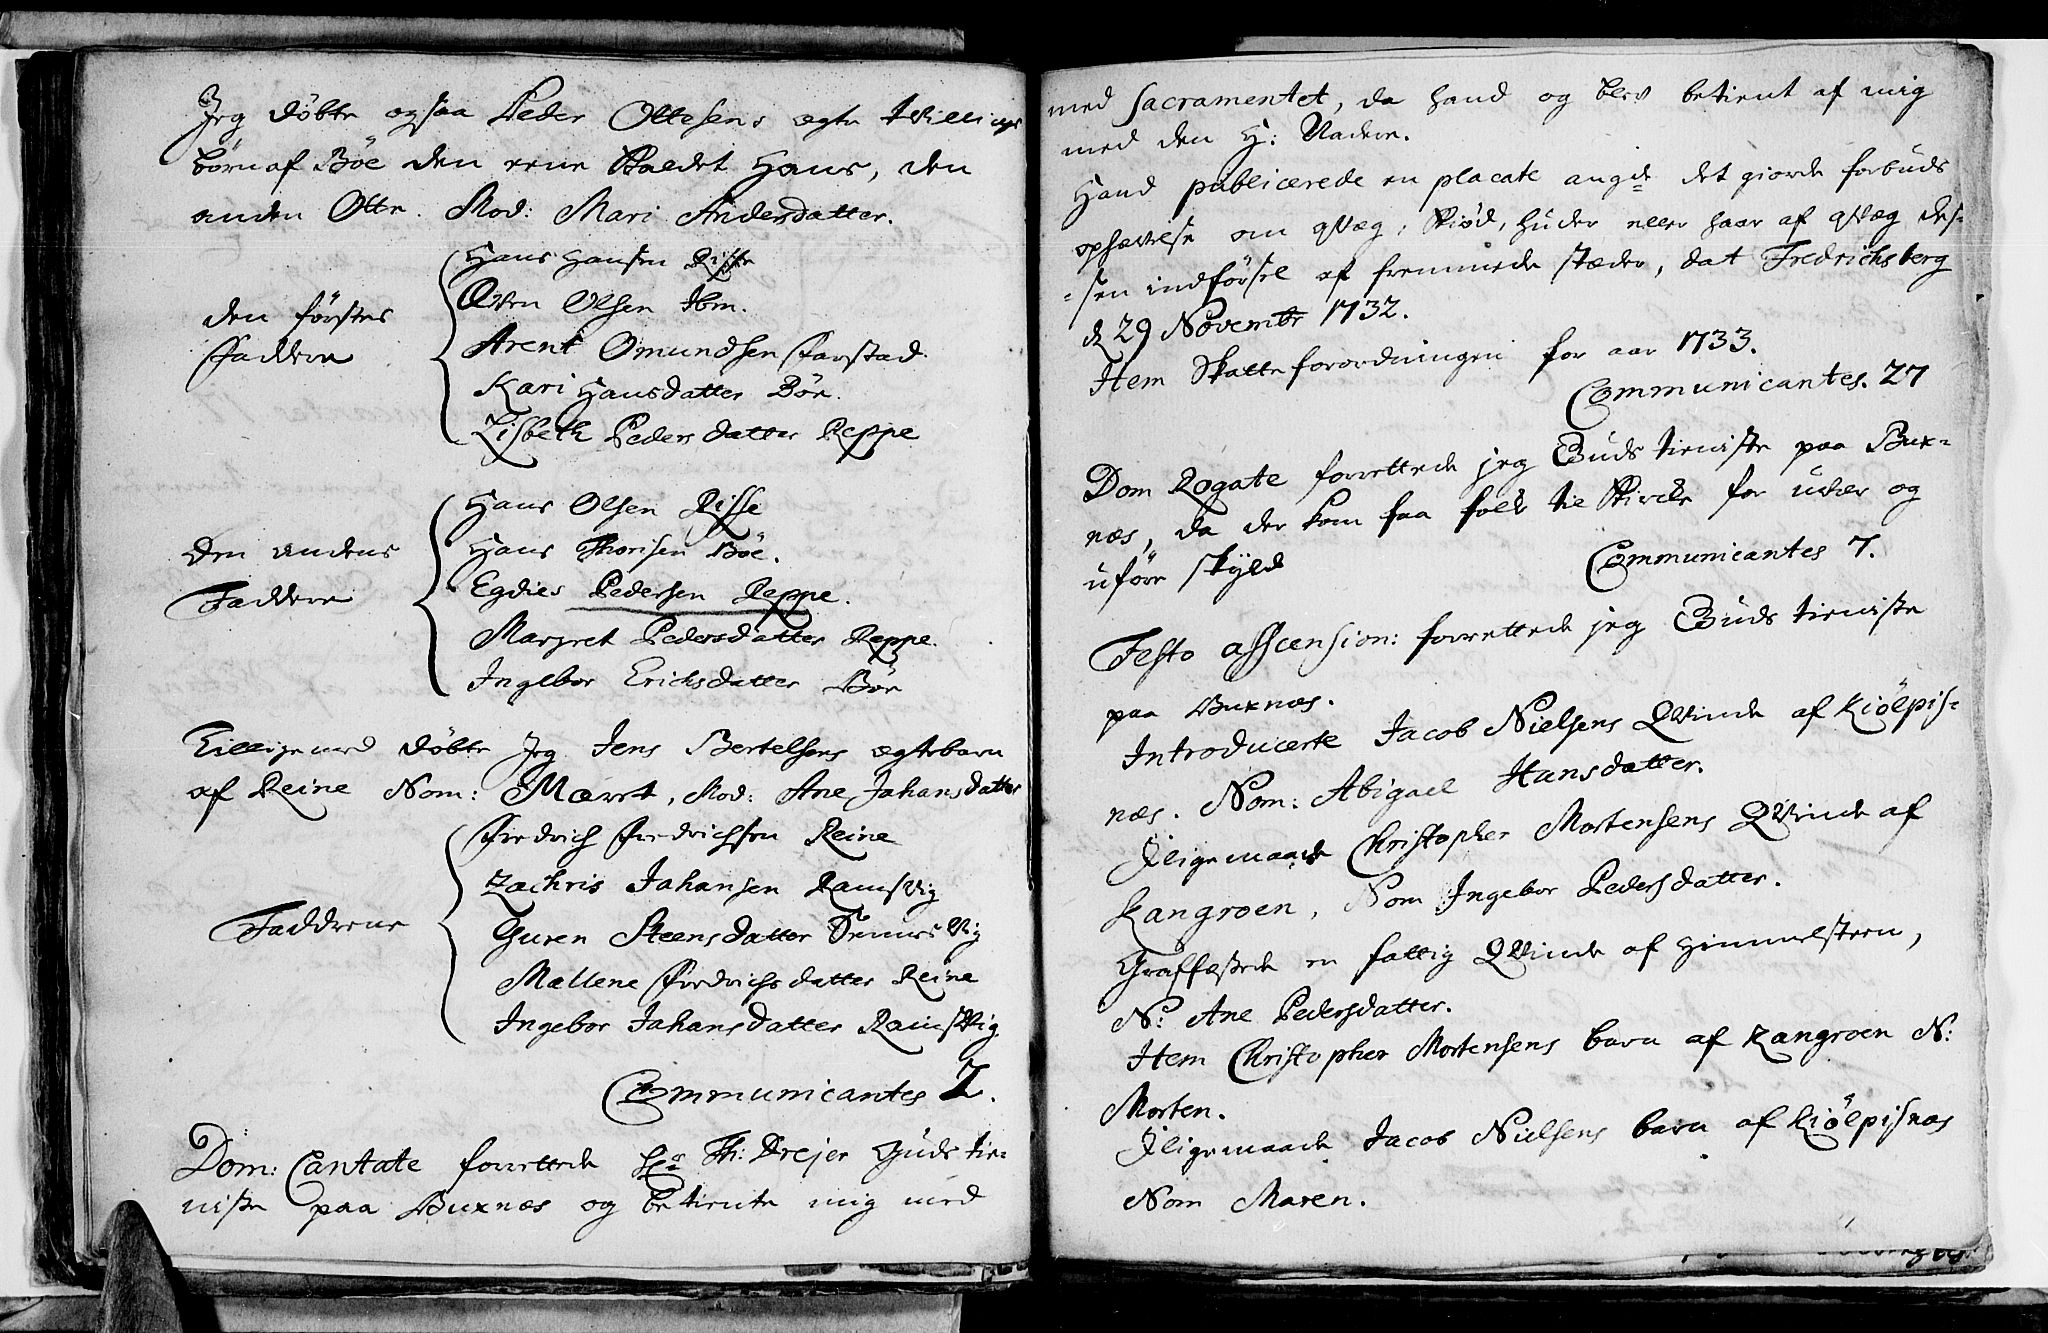 Jeg døbte ogsaa Peder Ottesens ægte tvillings
børn af Böe den eene kaldet Hans, den
anden Otte. Mod: Mari Andersdatter.
Hans Hansen Risse
Olsen Ibm.
den förstes
Faddere
Arent Omundsen Farstad
Kari Hansdatter Böe.
Lisbeth Peders datter Reppe
Hans Olsen Risse
Den andens
Hans Thorisen Böe.
Faddere
Egdies Pedersen Reppe.
Margret Pedersdatter Reppe.
Ingebor Erichsdatter Böe
Tilligemed döbte Jeg Jens Bertelsens ægtebarn
af Reine Nom: Mærit, Mod: Ane Johansdatter
Fredrich Fredrichsen Reine
Zachris Johansen Ramsvig
Fadderne
Guren Steensdatter
Mallene Fredrichsdatter Reine
Ingebor Johansdatter Ramsvig
Communicantes 7.
Dom: Cantate forrettede Hr: Th: Drejer Guds tie-
niste paa Buxnæs og betiente mig med
med Sacramentet, da hand og blev betient af mig
med den H: Nadere.
Hand publicerede en placate angde det giorde forbuds
ophævelse om qvæg, Kiöd, huder eller haar af qvæg des-
=sen indförsel af fremmede stæder, dat Fredrichsberg
d 29 Novembr 1732.
Item Skatte forordningen for aar 1733.
Communicantes. 27
Dom Rogate forrettede jeg Guds tieniste paa Bux-
næs, da der kom faa folk til Kircke for uvær og
uföre skyld
Communicantes 7.
Festo asscension: forrettede jeg Guds tieniste
paa Buxnæs.
Introducerte Jacob Nielsens Qvinde af Kiölpis-
næs. Nom: Abigael Hansdatter.
Iligemaade Christopher Mortensens Qvinde af
Kangroen, Nom Ingebor Pedersdatter.
Graffæstede en fattig Qvinde af Himmelsteen,
N: Ane Pedersdatter.
Item Christopher Mortensens barn af Kangroen N:
Morten.
Iligemaade Jacob Nielsens barn af Kiölpisnæs
Nom Maren.